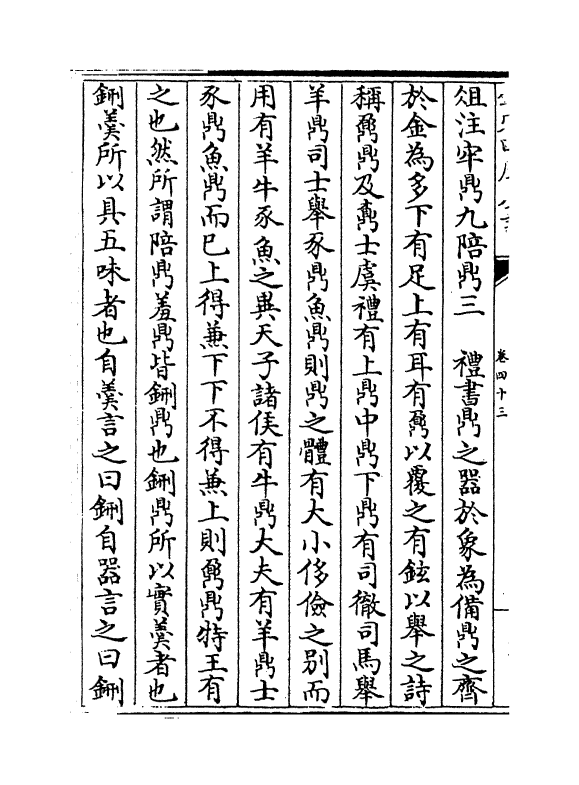 卷四十三
俎注牢鼎九陪鼎三　禮書鼎之器於象為備鼎之齊
於金為多下有足上有耳有鼏以覆之有鉉以舉之詩
稱鼐鼎及鼒士虞禮有上鼎中鼎下鼎有司徹司馬舉
羊鼎司士舉豕鼎魚鼎則鼎之體有大小侈儉之别而
用有羊牛豕魚之異天子諸侯有牛鼎大夫有羊鼎士
豕鼎魚鼎而已上得兼下下不得兼上則鼐鼎特王有
之也然所謂陪鼎羞鼎皆鉶鼎也鉶鼎所以實羮者也
鉶羮所以具五味者也自羮言之曰鉶自器言之曰鉶